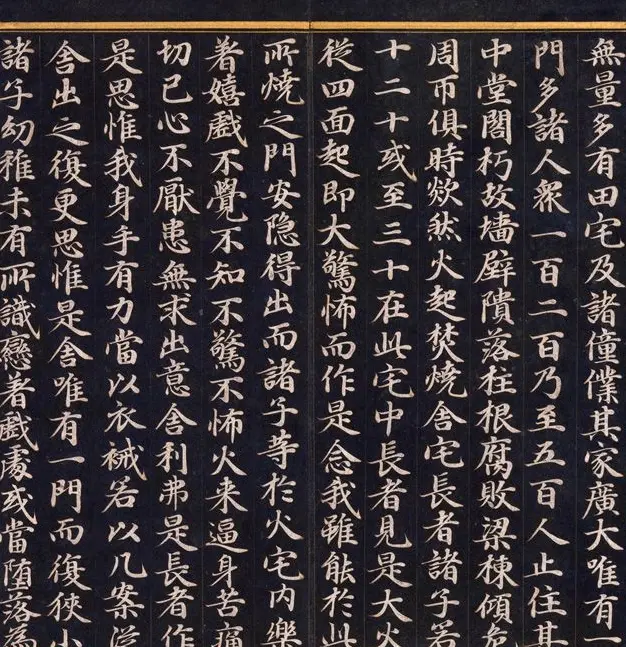 無量多有田宅及諸僮僕其家廣大唯有一
門多諸人衆一百二百乃至五百人止住其
中堂閣朽故墻壁隤落柱根腐敗梁棟傾危
周帀俱時欻然火起焚燒舍宅長者諸子若
十二十或至三十在此宅中長者見是大火
從四面起即大驚怖而作是念我雖能於此
所燒之門安隱得出而諸子等於火宅內樂
著嬉戲不覺不知不驚不怖火来逼身苦痛
切已心不厭患無求出意舍利弗是長者作
是思惟我身手有力當以衣裓若以几案從
舍出之復更思惟是舍唯有一門而復狹小
諸子幼稚未有所識戀著戲處或當墮落為